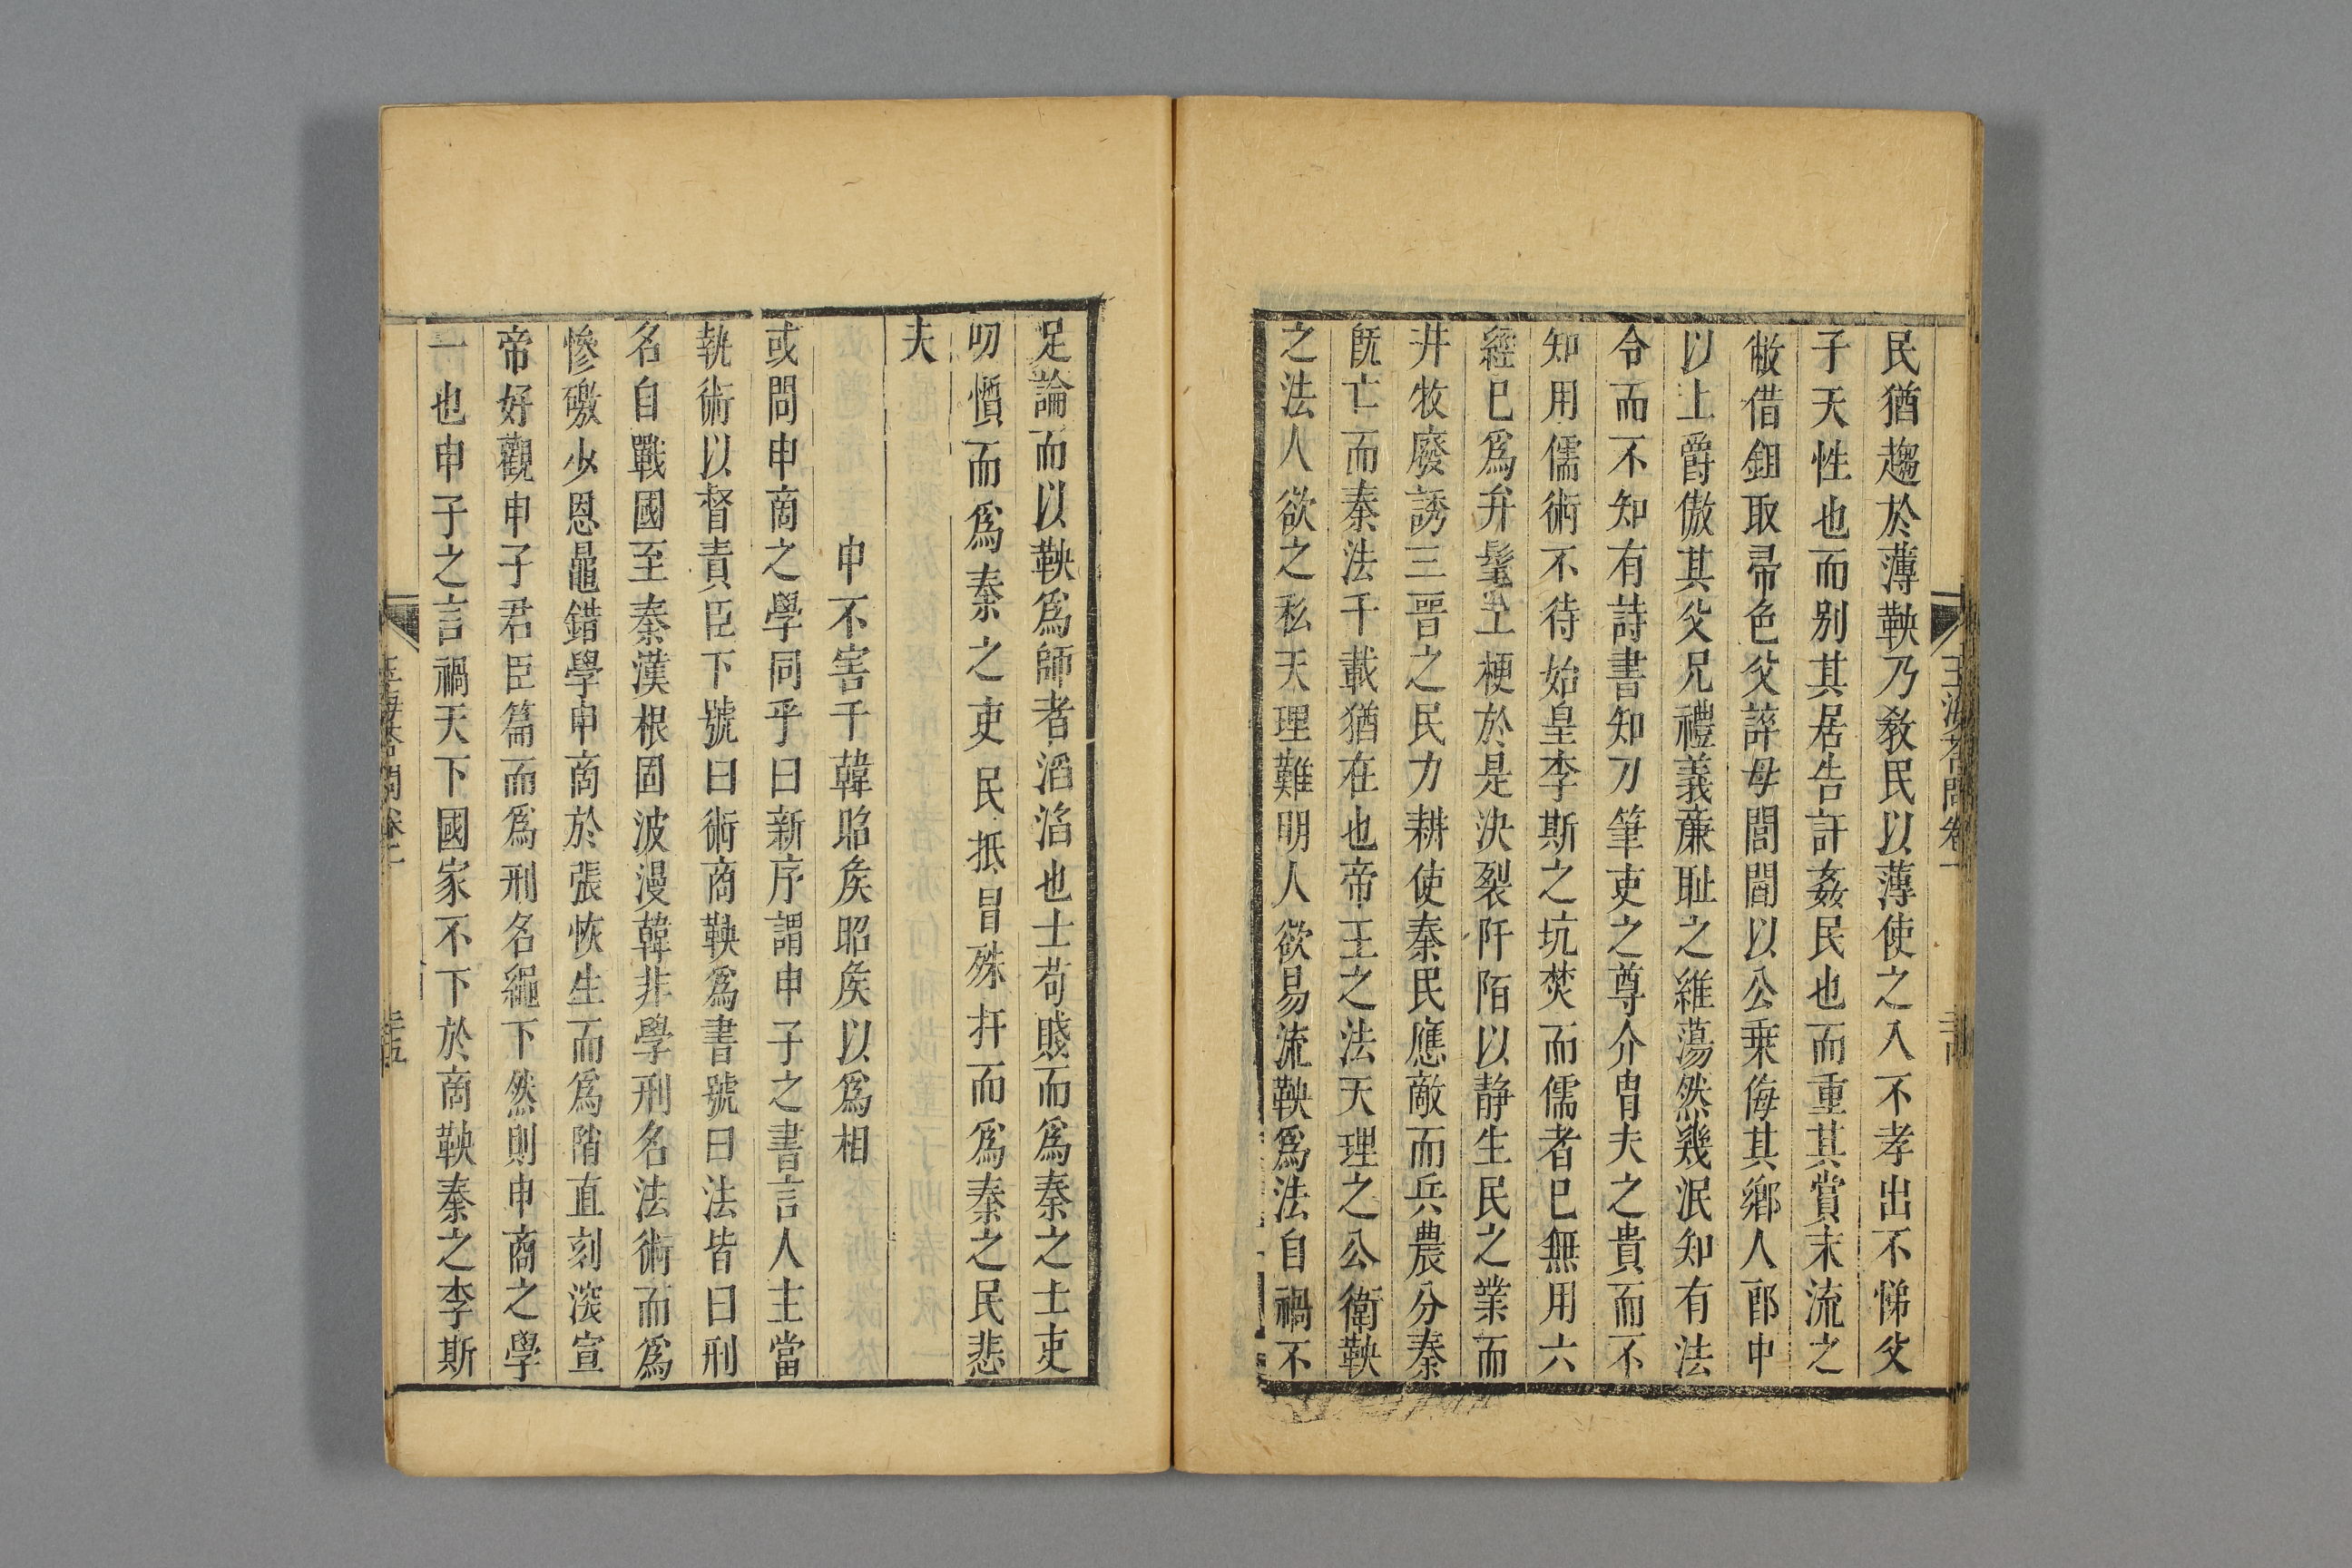 民猶趨於薄鞅乃敎民以薄使之入不孝出不悌父
子天性也而別其居告訐姦民也而重其賞末流之
敝借鉏取帚色父誶母閭閻以公乗侮其鄕人郎中
以上爵傲其父兄禮義廉耻之維蕩然幾泯知有法
令而不知有詩書知刀筆吏之尊介胄夫之貴而不
知用儒術不待始皇李斯之坑焚而儒者已無用六
經已爲弁髦土梗於是決裂阡陌以静生民之業而
井牧廢誘三晉之民力耕使秦民應敵而兵農分秦
旣亡而秦法千載猶在也帝王之法天理之公衛鞅
之法人欲之私天理難明人欲易流鞅爲法自禍不
足論而以鞅爲師者滔滔也士苟賤而爲秦之士吏
叨懫而爲秦之吏民抵冒殊扞而爲秦之民悲
夫
申不害干韓昭矦昭矦以爲相
或問申商之學同乎曰新序謂申子之書言人主當
執術以督責臣下號曰術商鞅爲書號曰法皆曰刑
名自戰國至秦漢根固波漫韓非學刑名法術而爲
慘礉少恩鼂錯學申商於張恢生而爲陗直刻深宣
帝好觀申子君臣篇而爲刑名繩下然則申商之學
一也申子之言禍天下國家不下於商鞅秦之李斯